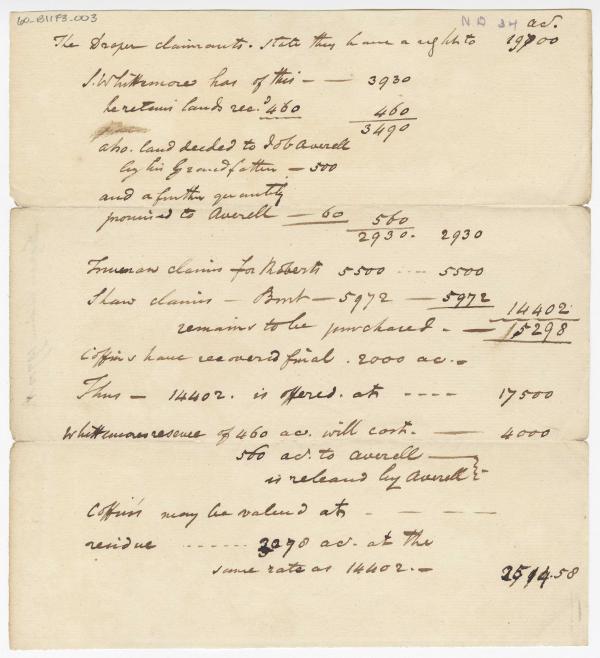 60-B11F3.003
ND 34
ac.
The Draper claimants. State they have a right to 19700
S. Whittemore has of this — — 3930
he retains lands rec.d 460 460
3490
also. land deeded to Job Averell
by his Grandfather — 500
and a further quantity
promised to Averell — 60 560
2930. 2930
Trueman claims for Roberts 5500 .... 5500
Shaw claims — Bmt — 5972 — 5972 14402
remains to be purchased. — 15298
Coffins have recovered final . 2000 ac. —
Thus — 14402. is offered. at ---- 17500
Whittemores reserve of 460 ac. will cost. — 4000
560 ac. to Averell —
is releasd by Averell
Coffin's may be valued at - — — —
residue ....... 3298 ac. at the
same rate as 14402. — 2514.58